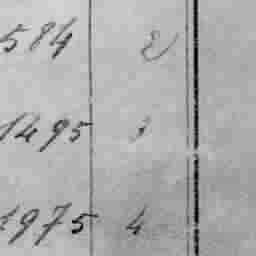 584 2
1495 3
1975 4